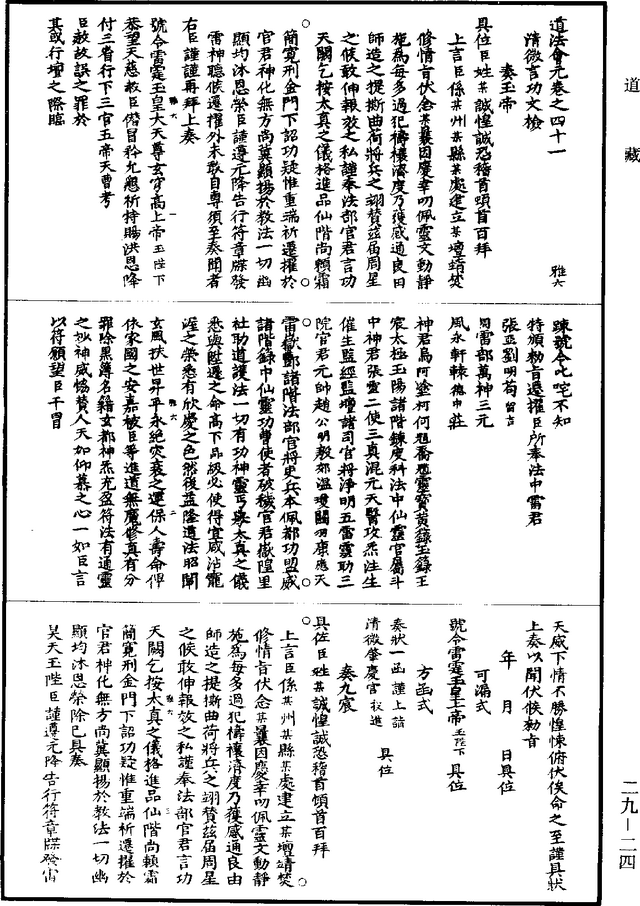 道法會元卷之四十一
雅六
清微言功文檢
奏玉帝
具位臣姓某誠惶誠恐稽首頓首百拜
上言臣係某州某縣某處建立某壇靖焚
修情旨伏念某曩因慶幸叨佩靈文動靜
施爲每多過犯禱禳濟度乃獲感通良由
師造之提撕曲荷將兵之翊贊茲屆周星
之候敢伸報效之私謹奉法部官君言功
天闕乞按太真之儀格進品仙階尚賴霜
簡寬刑金門下詔功疑惟重端祈遷擢於
官君神化無方尚冀顯揚於教法一切幽
顯均沐恩榮臣謹遵元降告行符章牒發
雷神聽候遷擢外未敢自專須至奏聞者
右臣謹謹再拜上奏
號令雷霆玉皇大天尊玄穹高上帝玉陛下
恭望天慈赦臣僭冒矜允懇祈特賜洪恩降
付三省行下三官五帝天曹考
臣赦故誤之罪於
其或行壇之際臨
疎號令叱咤不知
特頒勅旨遷擢臣所奉法中雷君
張亞劉明苟留吉
同雷部萬神三元
風永軒轅德中莊
神君烏阿塗柯何兇喬兇靈寶黃籙玉籙王
宸太極玉陽諸階鍊度科法中仙靈官屬斗
中神君張靈二使三真混元天醫攻炁注生
催生監經監壇諸司官將淨明五雷靈助三
院官君元帥趙公明教郊溫瓊關羽康應天
雷嶽酆諸階法部官將吏兵本佩都功盟威
諸階籙中仙靈功曹使者破穢官君嶽隍里
社助道護法一切有功神靈丐與太真之儀
悉與陞遷之命高下品級必使得宜咸沾寵
渥之榮悉有欣慶之色然後益隆道法昭闡
玄風扶世昇平永絕災衰之運保人壽命俾
依家國之安嘉被臣等進道無魔修真有分
罪除黑簿名籍玄都神炁充盈符法有通靈
之妙神威恊贊人天如仰慕之心一如臣言
以符願望臣干冒
天威下情不勝惶悚俯伏俟命之至謹具狀
上奏以聞伏候勅旨
年　月　日具位
可漏式
號令雷霆玉皇上帝玉陛下　具位
方函式
奏狀一函　謹上詣
清微肇慶宮　投進　具位
奏九宸
具位臣姓某誠惶誠恐稽首頓首百拜
上言臣係某州某縣某處建立某壇靖焚
修情旨伏念某曩因慶幸叨佩靈文動靜
施爲每多過犯禱禳濟度乃獲感通良由
師造之提撕曲荷將兵之翊贊茲屆周星
之候敢伸報效之私謹奉法部官君言功
天闕乞按太真之儀格進品仙階尚賴霜
簡寬刑金門下詔功疑惟重端祈遷擢於
官君神化無方尚冀顯揚於教法一切幽
顯均沐恩榮除已具奏
昊天玉陛臣謹遵元降告行符章牒發雷
道　藏
二九—二四